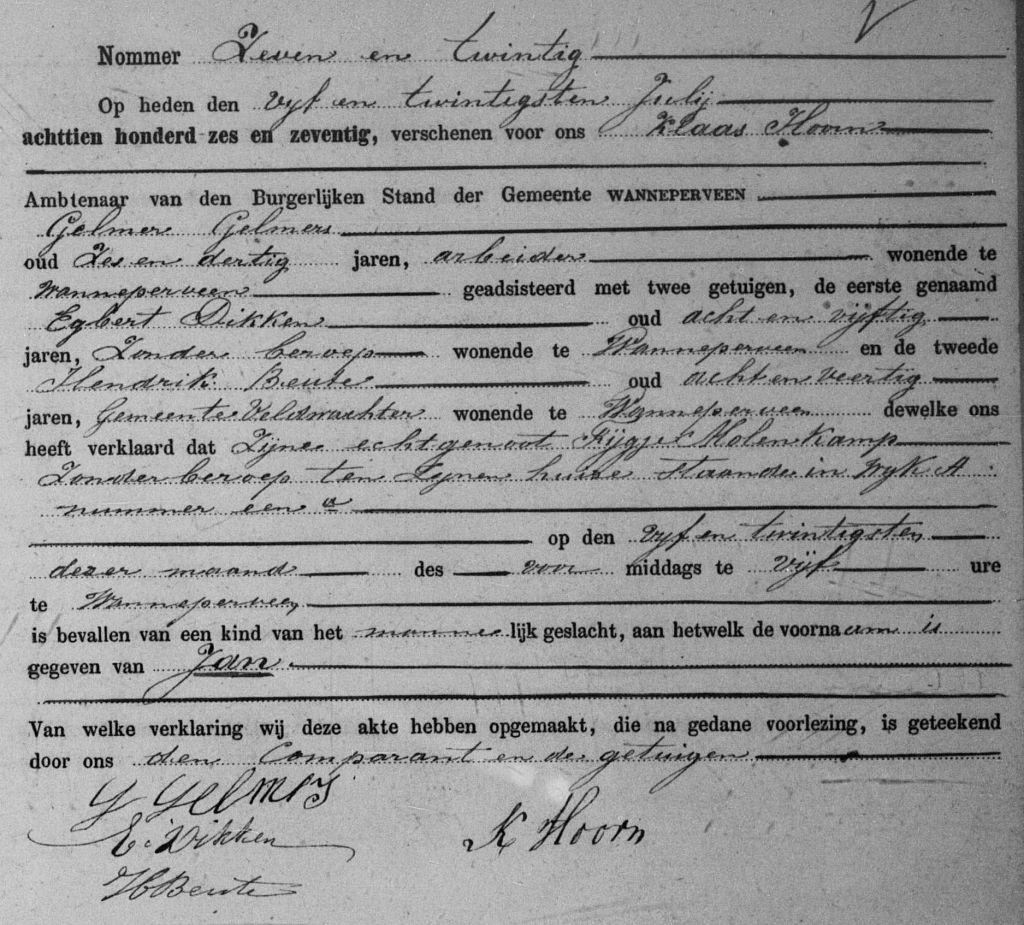 Nommer Zeven en twintig
Op heden den vyf en twintigsten Julij
achttien honderd zes en zeventig, verschenen voor ons Klaas Hoorn
Ambtenaar van den Burgerlijken Stand der Gemeente WANNEPERVEEN
Gelmer Gelmers
oud Zes en dertig jaren, arbeider wonende te
Wanneperveen geadsisteerd met twee getuigen, de eerste genaamd
Egbert Dikken oud acht en vijftig
jaren, Zonder beroep wonende te Wanneperveen en de tweede
Hendrik Beute oud acht en veertig
jaren, Gemeente Veldwachter wonende te Wanneperveen dewelke ons
heeft verklaard dat Zijne echtgenoot Molenkamp
Zonder beroep ten Zynen huize staande in Wyk A
nummer een a
op den vyf en twintigsten
dezer maand des voor middags te vijf ure
te Wanneperveen
is bevallen van een kind van het manne lijk geslacht, aan hetwelk de voornaam is
gegeven van Jan
Van welke verklaring wij deze akte hebben opgemaakt, die na gedane voorlezing, is geteekend
door ons den Comparant en de getuigen
G Gelmers
E. Dikken K Hoorn
H Beute